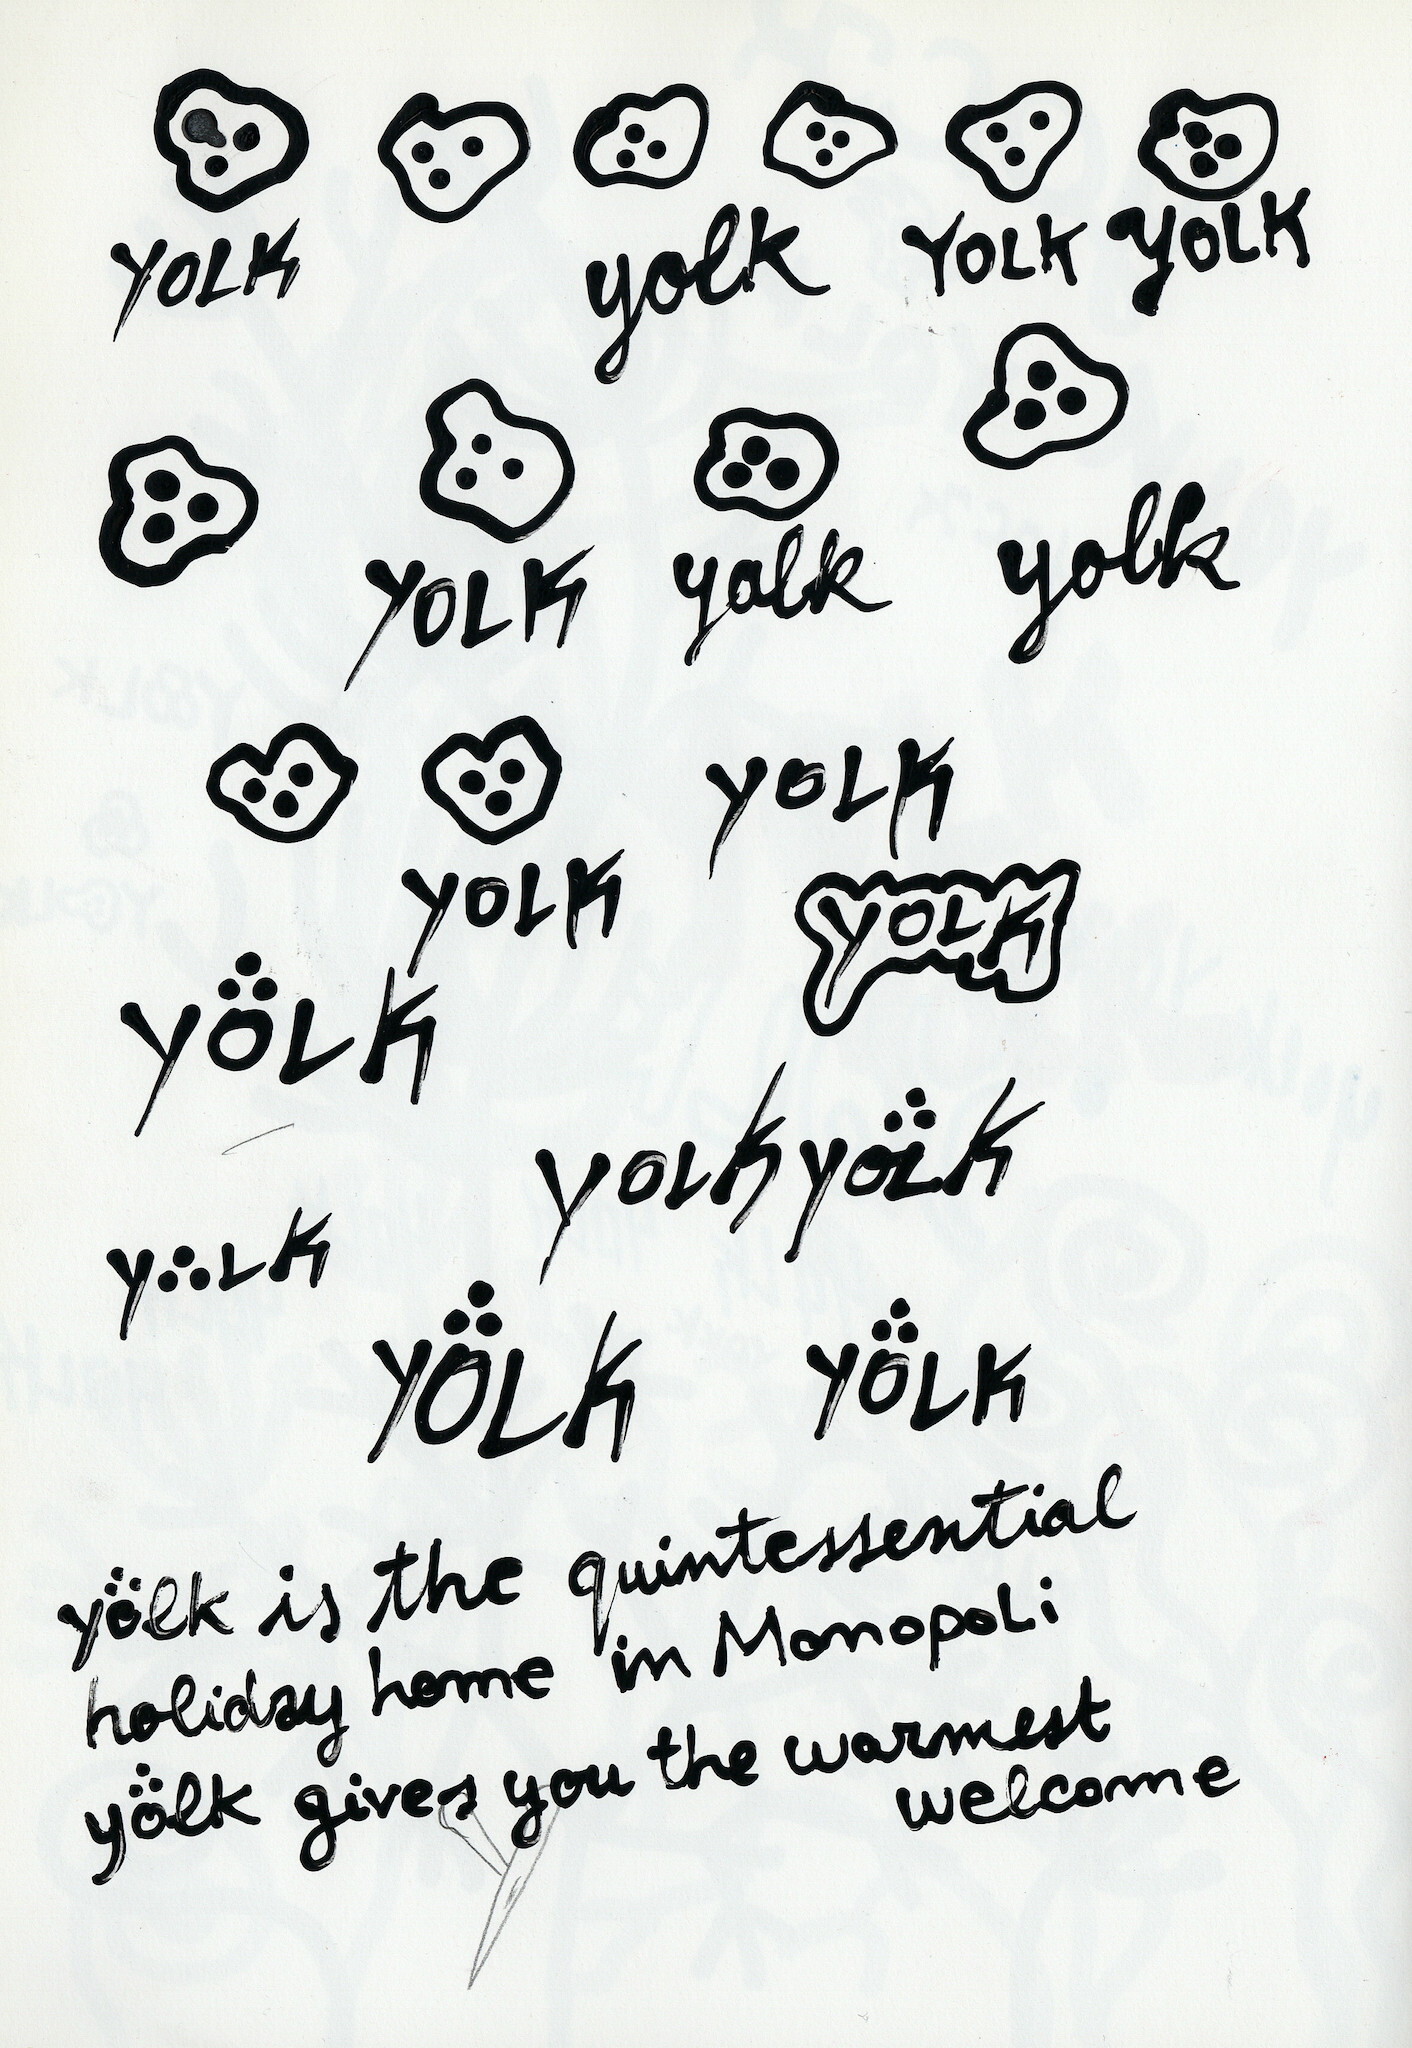 YOLK
yolk
YOLK
YOLK
YOLK
yolk
yolk
YOLK
YOLK
YOLK
YOLK
YOLK
YOLK
Y LK
YOLK
YOLK
yolk is the quintessential
holiday home in Monopoli
yolk gives you the warmest
welcome